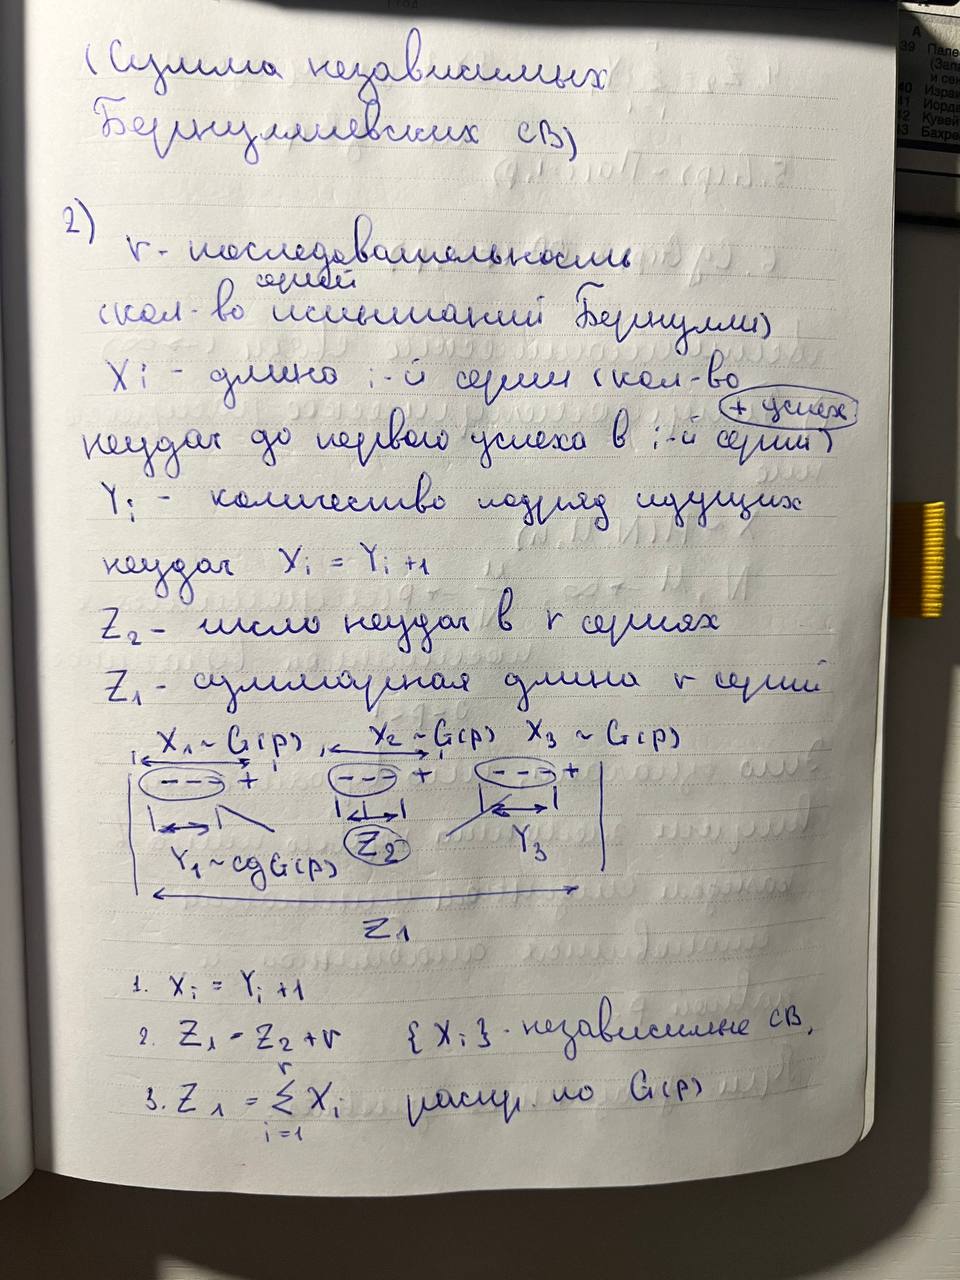 (Сумма независимых
Бернуллиевских СВ)
2)
r - последовательность
серий
(кол-во испытаний Бернулли)
Xi - длина i-й серии (кол-во
+ успех
неудач до первого успеха в i-й серии)
Yi - количество подряд идущих
неудач Xi = Yi +1
Z2 - число неудач в r сериях
Z1 - суммарная длина r серий
X1 ~ G(p), X2 ~ G(p) X3 ~ G(p)
--- + --- + --- +
Y1 ~ сдG(p) Z2 Y3
Z1
1. Xi = Yi +1
2. Z1 = Z2 + r {Xi} - независимые СВ,
r
3. Z1 = Σ Xi распр. по G(p)
i=1
А
39 Пале
(Запа
и сек
40 Изра
41 Иорда
42 Кувей
43 Бахре